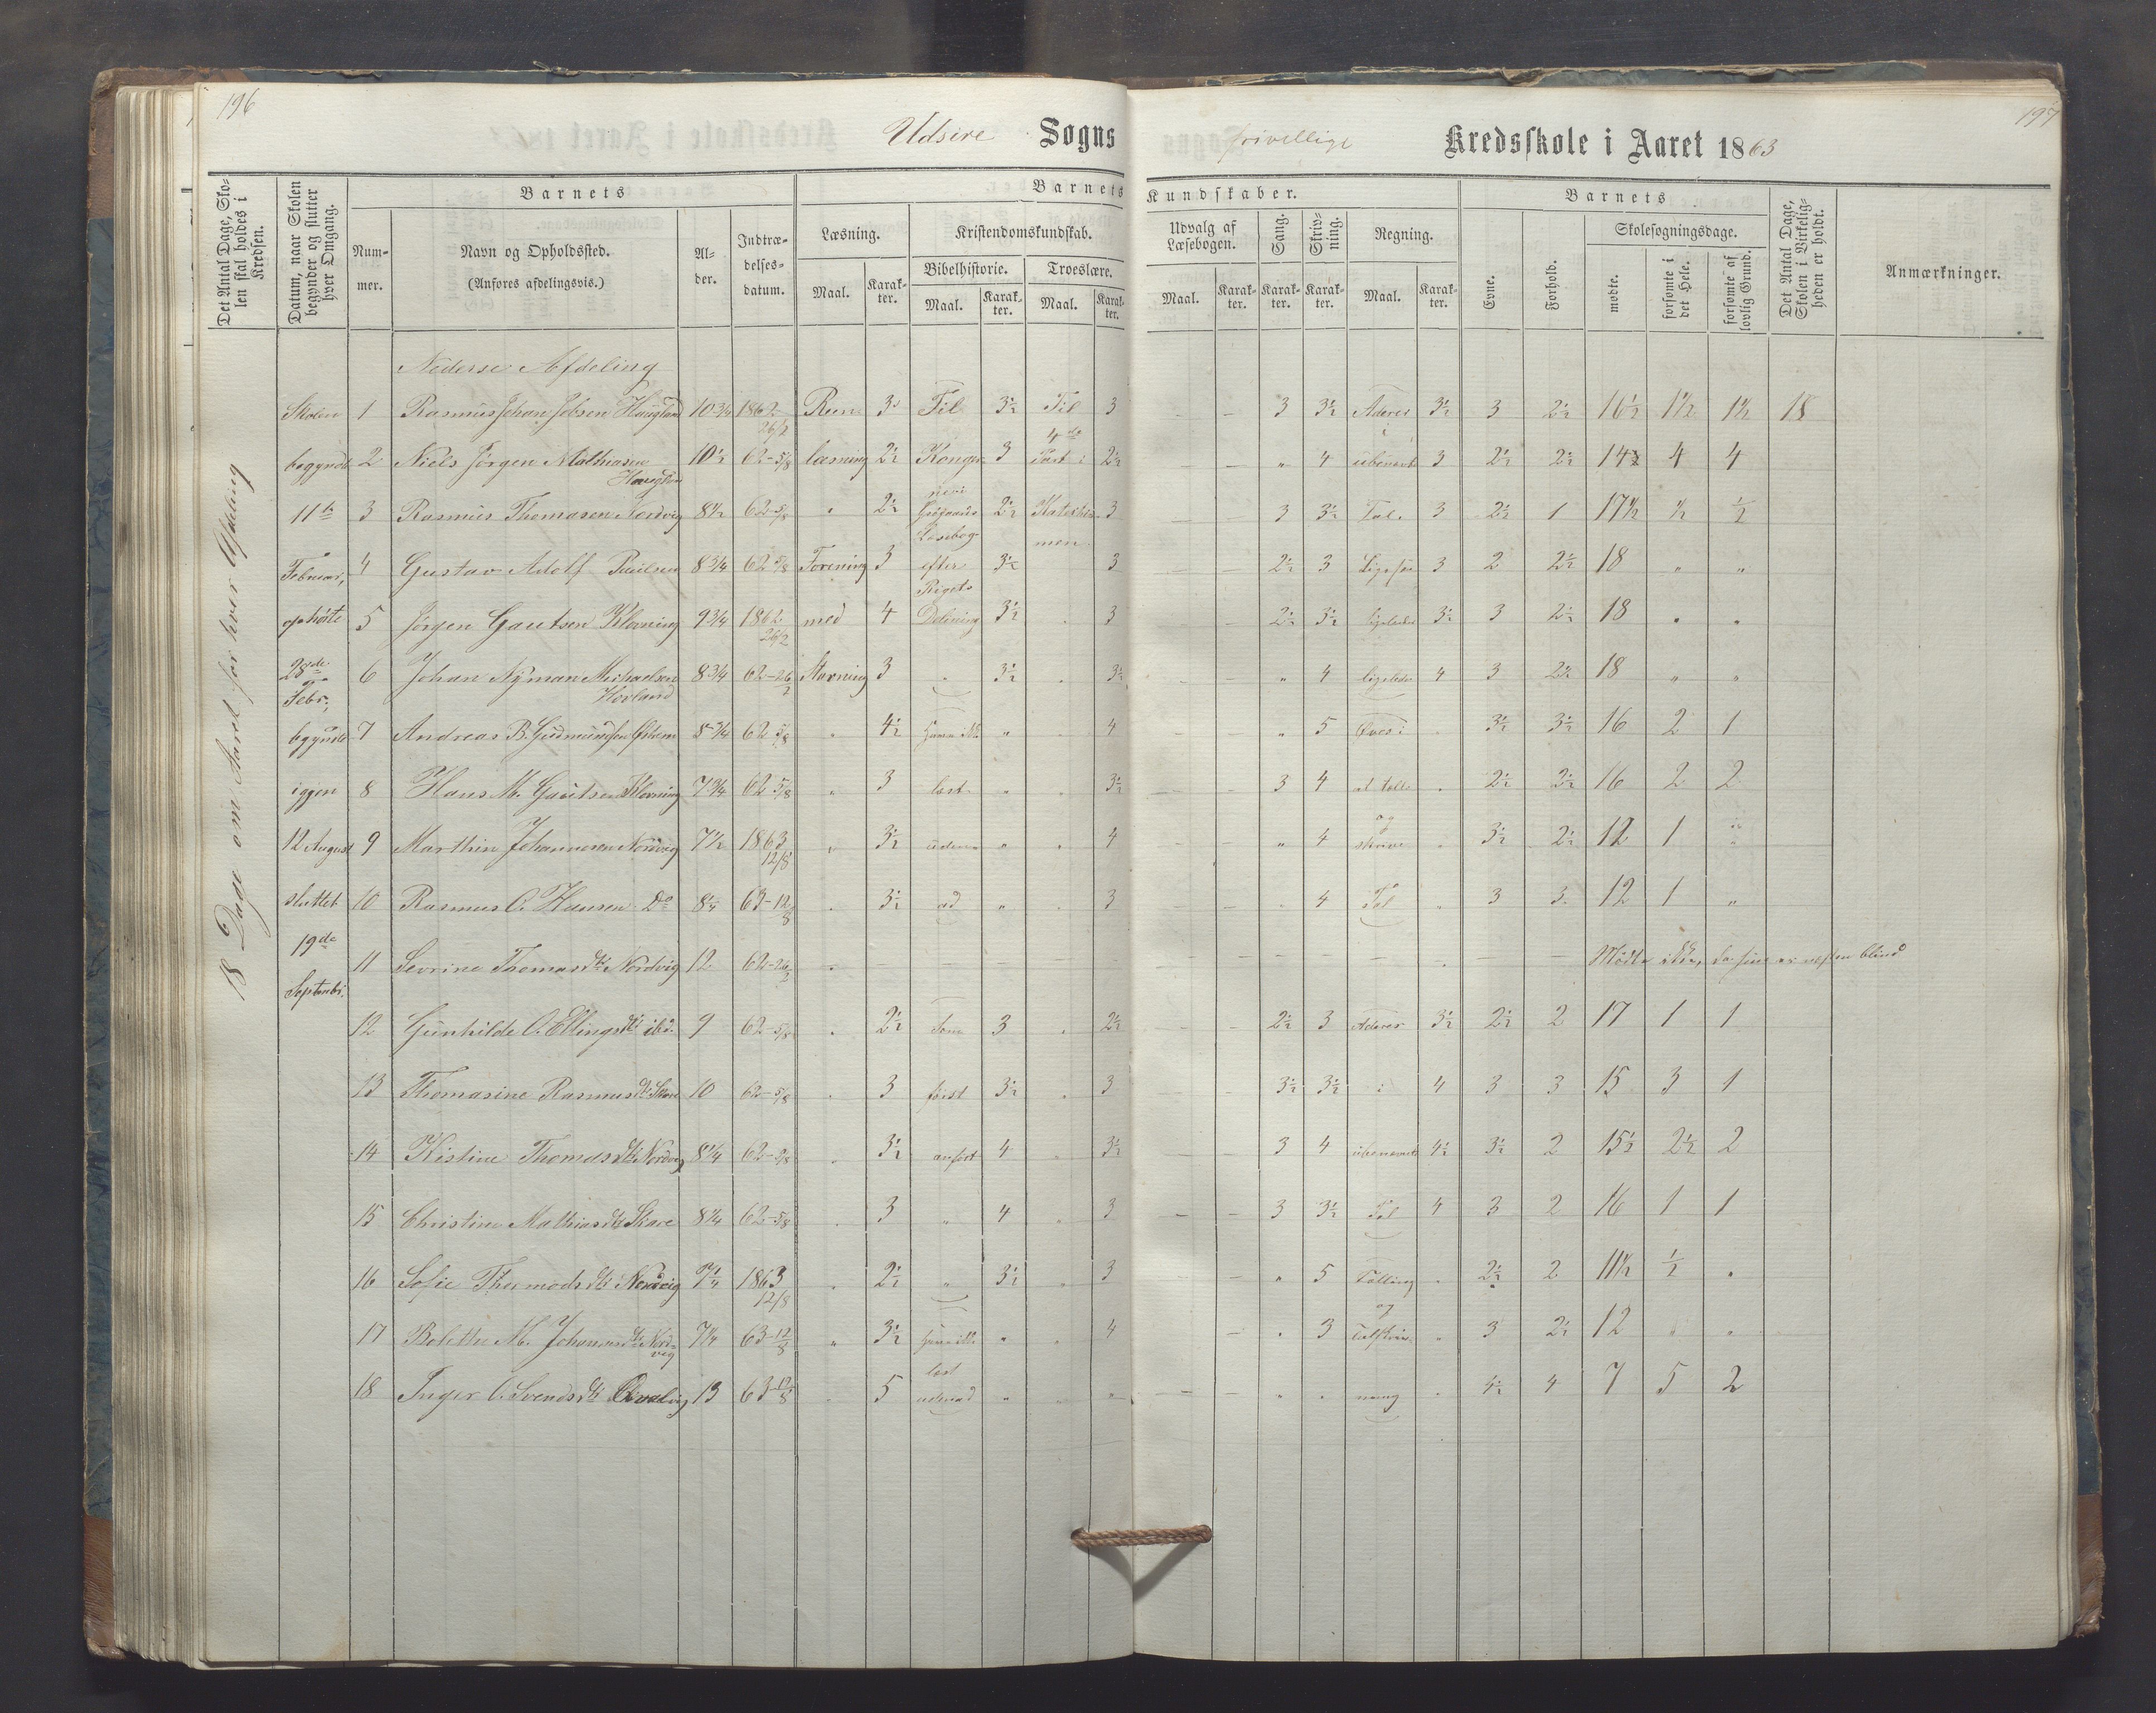 196
Udsire Sogns
frivillige Kredsskole i Aaret 1863
197
Det Antal Dage, Skolen skal holdes i Kredsen.
Datum, naar Skolen begynder og slutter hver Omgang.
Barnets
Nummer.
Navn og Opholdssted.
(Anføres afdelingsvis.)
Alder.
Indtrædelsesdatum.
Barnets Kundskaber.
Læsning.
Maal.
Karakter.
Kristendomskundskab.
Bibelhistorie.
Maal.
Karakter.
Troeslære.
Maal.
Karakter.
Udvalg af Læsebogen.
Maal.
Karakter.
Sang.
Karakter.
Skrivning.
Karakter.
Regning.
Maal.
Karakter.
Barnets
Evne.
Forhold.
Skolesøgningsdage.
mødte.
forsømte i det Hele.
forsømte af lovlig Grund.
Det Antal Dage, Skolen i Virkeligheden er holdt.
Anmærkninger.
18 Dage om Aaret for hver Afdeling
Nederste Afdeling
Skolen 1 Rasmus Johan Jobsen Haugland 10 3/4 1862 26/2 Reen 3 Til 3½ Til 3 - - 3 3½ Aderes 3½ 3 2½ 16½ 1½ 1½ 18
begyndte 2 Niels Jørgen Mathiasen Haugland 10½ 62-5/8 læsning 2½ Konge 3 4de Part i 2½ - - " 4 ubenævnte 3 2½ 2½ 14 4 4
11te 3 Rasmus Thomasen Nordvig 8½ 62-5/8 " 2½ 2½ Katekis 3 - - 3 3½ Tal. 3 2½ 1 17½ ½ ½
Læsebog men
Februar, 4 Gustav Adolf Paulsen 8 3/4 62 5/8 Forening 3 efter 3½ 3 - - 2½ 3 Ligesaa 3 2 2½ 18 " "
Rigets
ophørte 5 Jørgen Gautsen Klovning 9 3/4 1862 26/2 med 4 Deling 3½ 3 - - 2½ 3½ ligeledes 3½ 3 2½ 18 " "
28de Febr., 6 Johan Nyman Michaelsen Hovland 8 3/4 62-26/2 Stavning 3 " 3½ 3½ " 4 ligeledes 4 3 2½ 18 " "
begyndte 7 Andreas B. Gudmundsen 8 3/4 62 5/8 " 4½ " 4 - - " 5 Øves i 3½ 3½ 16 2 1
iggen 8 Hans M. Gautsen Klovning 7 3/4 62 5/8 " 3 læst " 3½ - - 3 4 at tælle " 2½ 3½ 16 2 2
12 August 9 Marthin Johannesen Nordvig 7½ 1863 12/8 " 3½ uden " 4 - - " 4 og skrive " 3½ 2½ 12 1 "
sluttet 10 Rasmus O. Hansen Do 8¼ 63-12/8 " 3½ ad " 3 - - " 4 Tal " 3 3 12 1 "
19de
11 Sevrine Thomasdtr Nordvig 12 62-26/2 - - - - Mødte ikke, da hun er næsten blind
Septembr.
12 Gunhilde O. Ellingsdtr ibd. 9 62-5/8 " 2½ Som 3 " 2½ - - 2½ 3 Aderes 3½ 2½ 2 17 1 1
13 Thomasine Rasmusdtr Skare 10 62-5/8 " 3 først 3½ " 3 - - 3½ 3½ i 4 3 3 15 3 1
14 Kistine Thomasdtr Nordvig 8¼ 62-5/8 " 3½ anført 4 " 3½ 3 4 ubenævnte 4½ 3½ 2 15½ 2½ 2
15 Christine Mathiasdtr Skare 8¼ 62-5/8 " 3 " 4 " 3 - - 3 3½ Tal 4 3 2 16 1 1
16 Sofie Thormodsdtr Nordvig 7¼ 1863 12/8 " 2½ " 3½ " 3 - " 5 Tælling " 2½ 2 11½ ½ "
17 Bolette M. Johannesdtr Nordvig 7¼ 63-12/8 " 3½ " " 4 - " 3 og Talskriv " 3 2½ 12 " "
læst
18 Inger O. Svendsdtr 13 63-12/8 " 5 udenad " " " - - " " ning " 4½ 4 7 5 2